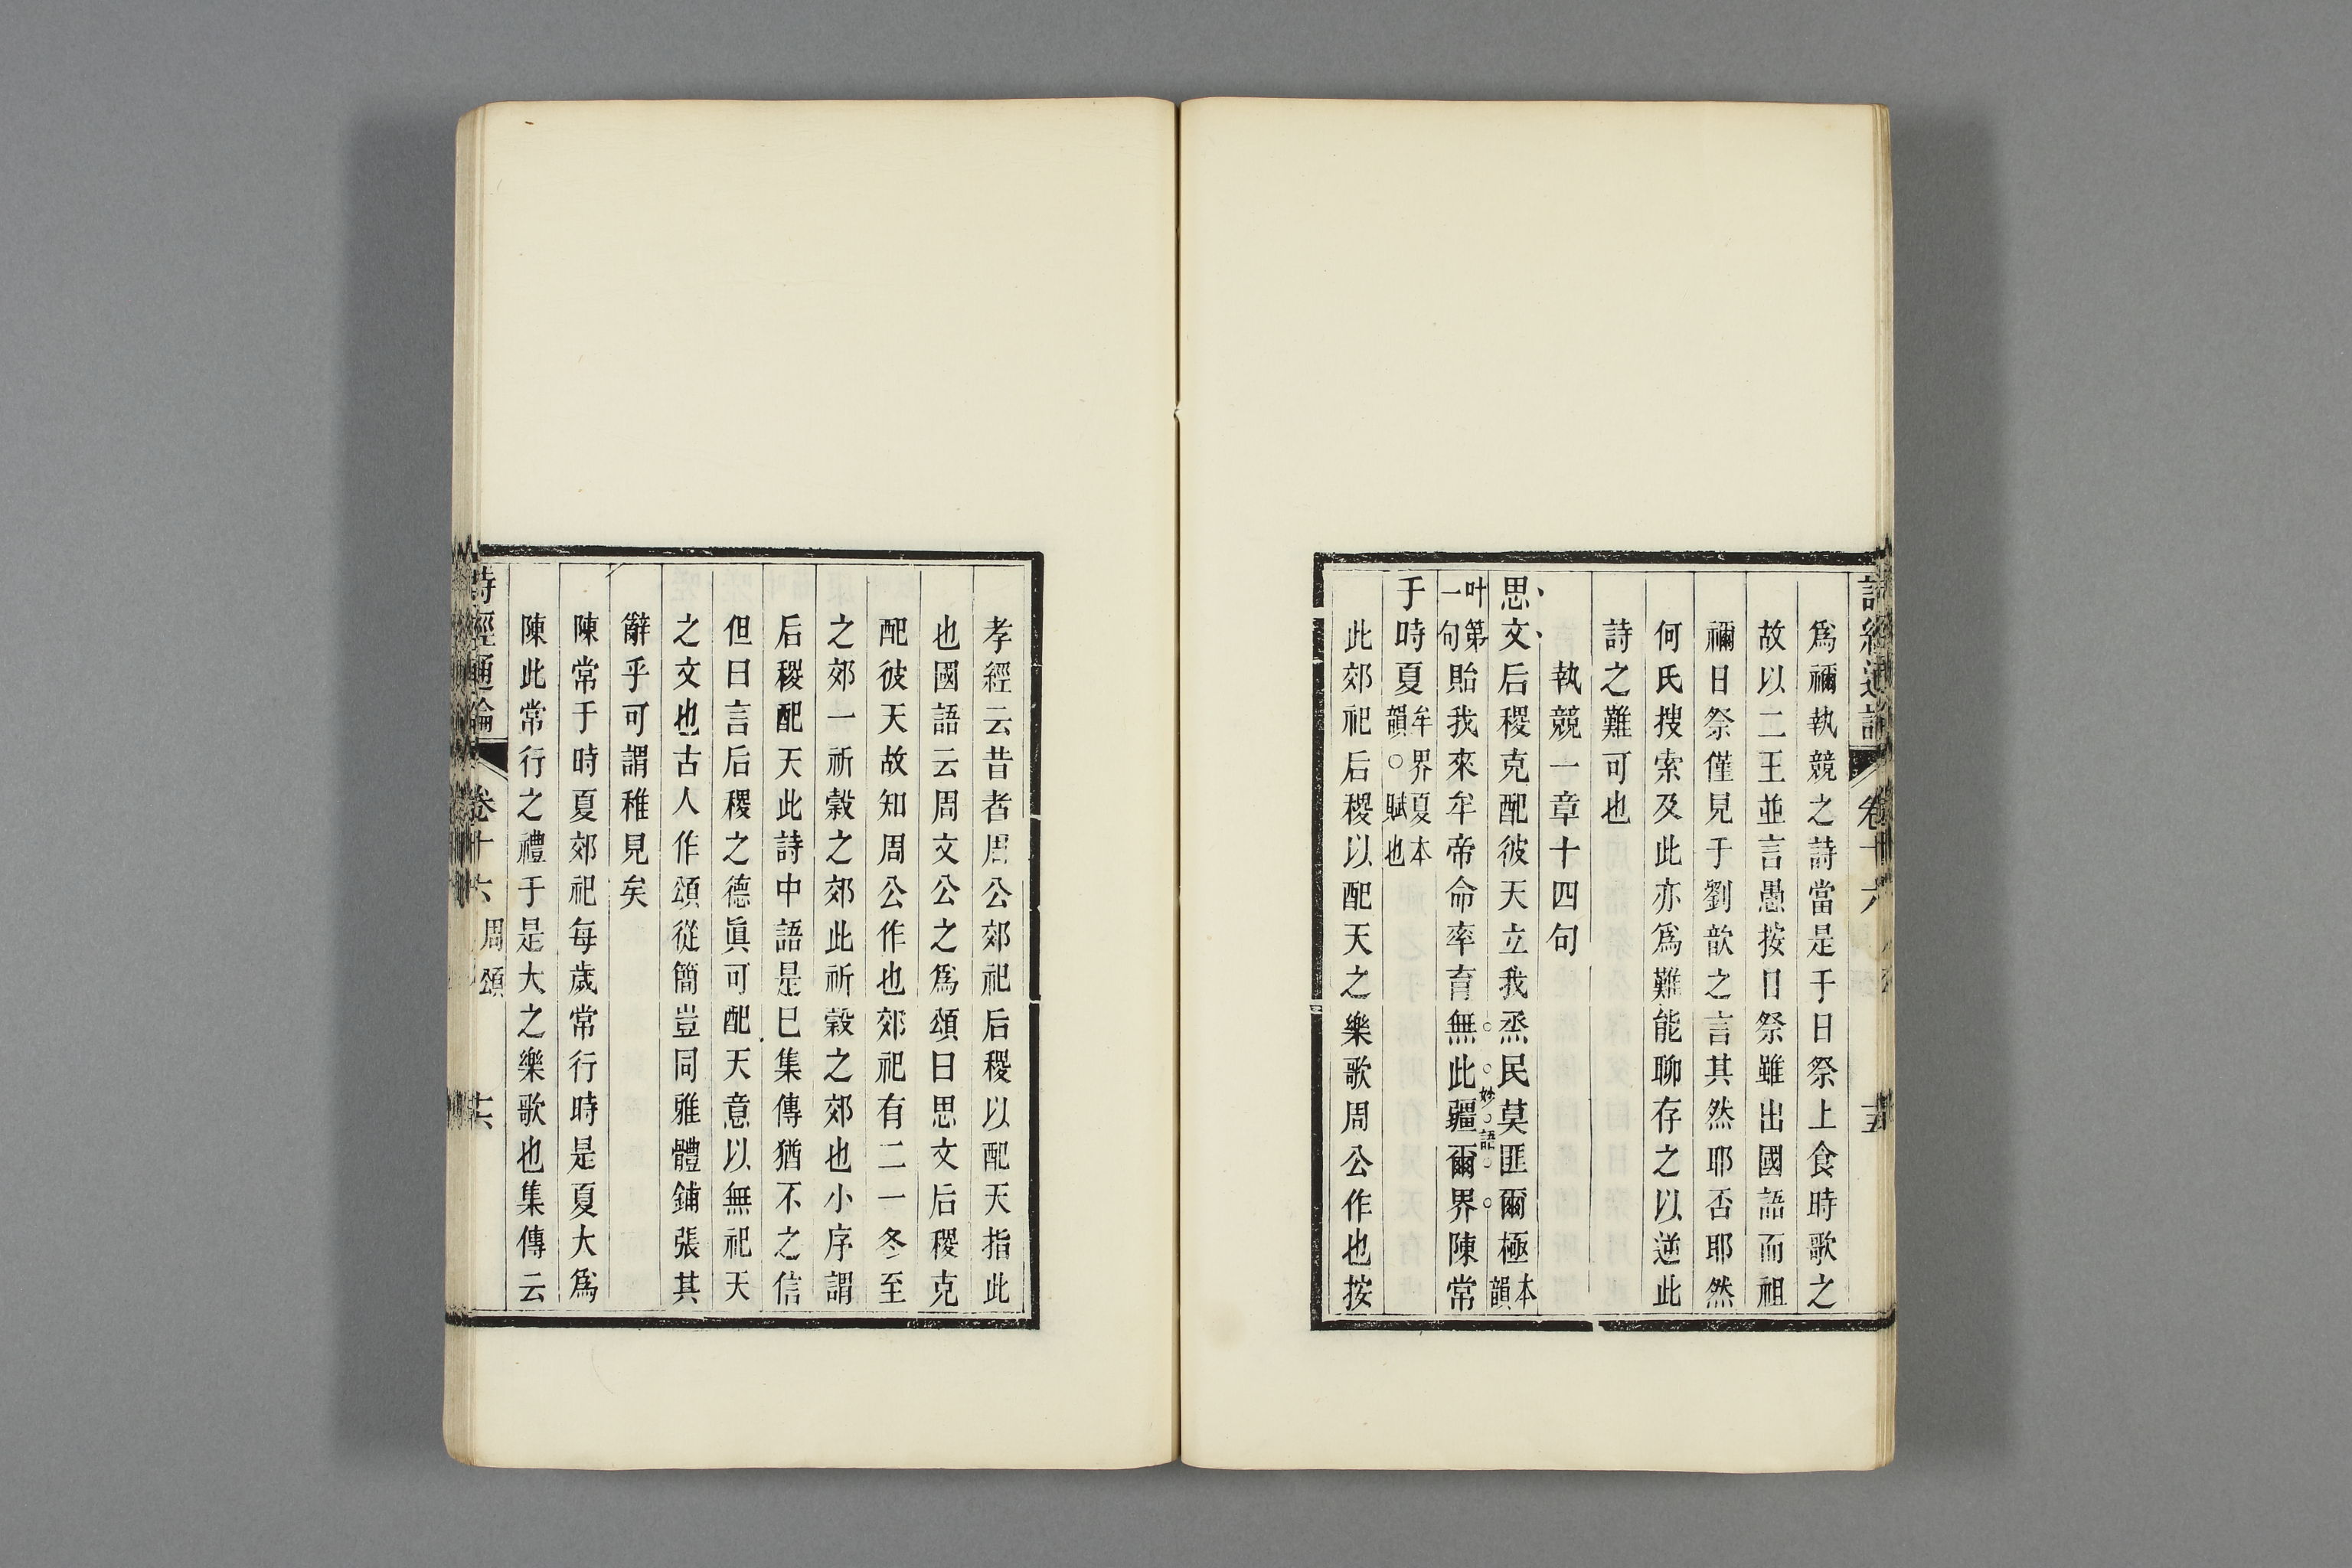 詩經通論 卷十六 十五
爲禰執競之詩當是于日祭上食時歌之
故以二王並言愚按日祭雖出國語而祖
禰日祭僅見于劉歆之言其然耶否耶然
何氏搜索及此亦爲難能聊存之以逆此
詩之難可也
執競一章十四句
思文后稷克配彼天立我烝民莫匪爾極本韻
妙語
叶第一句貽我來牟帝命率育無此疆爾界陳常
于時夏牟界夏本韻○賦也
此郊祀后稷以配天之樂歌周公作也按
孝經云昔者周公郊祀后稷以配天指此
也國語云周文公之爲頌曰思文后稷克
配彼天故知周公作也郊祀有二一冬至
之郊一祈穀之郊此祈穀之郊也小序謂
后稷配天此詩中語是已集傳猶不之信
但曰言后稷之德眞可配天意以無祀天
之文也古人作頌從簡豈同雅體鋪張其
辭乎可謂稚見矣
陳常于時夏郊祀每歲常行時是夏大爲
陳此常行之禮于是大之樂歌也集傳云
詩經通論 卷十六 周頌 十六